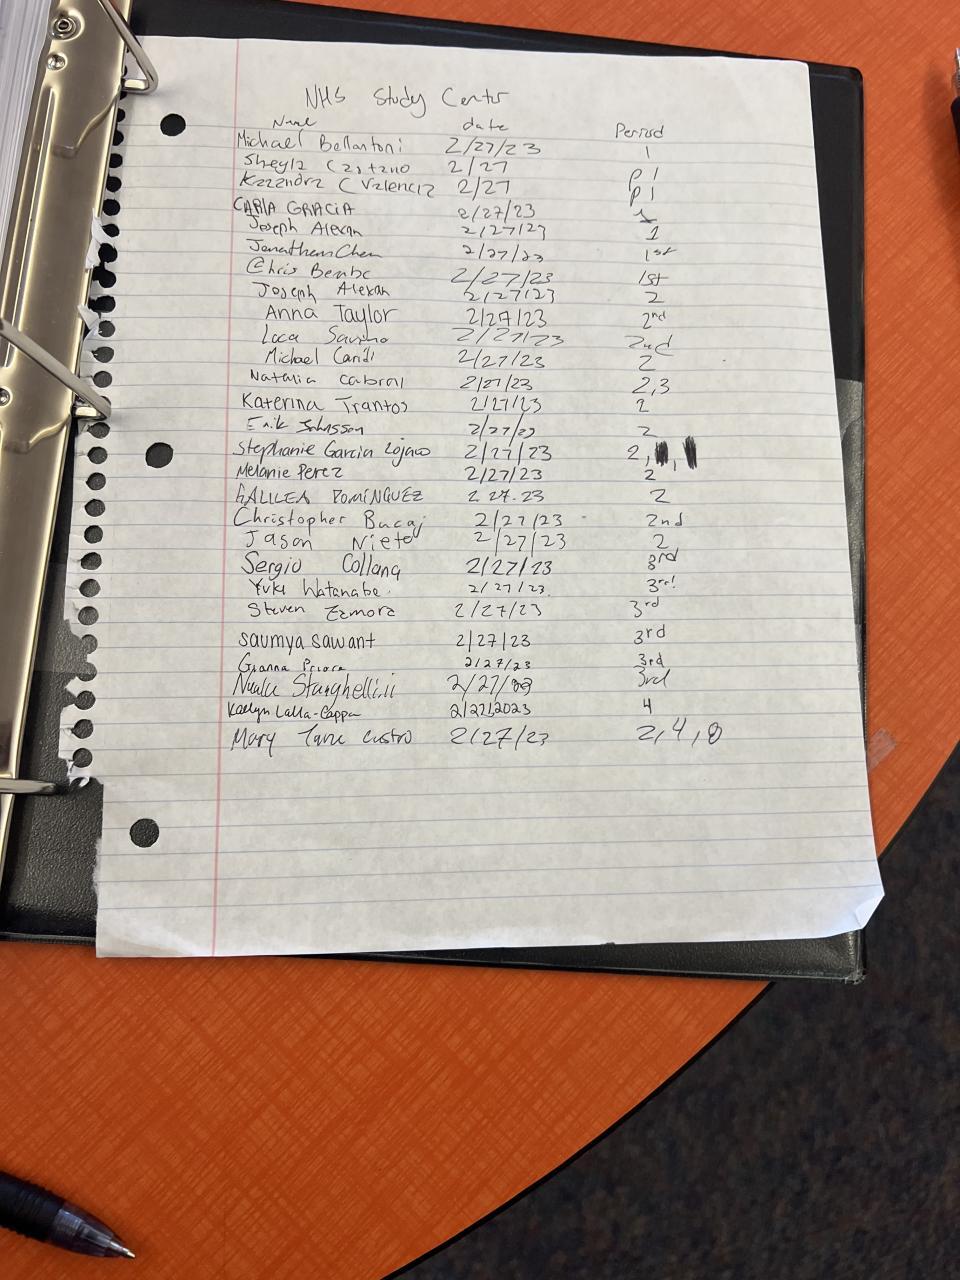 NHS Study Center
Name date Period
Michael Bellantoni 2/27/23 1
Sheyla Castano 2/27 p 1
Kazandra C Valencia 2/27 p 1
CARLA GRACIA 2/27/23 1
Joseph Alexan 2/27/23 1
Jonathan Chen 2/27/23 1st
Chris Bembe 2/27/23 1st
Joseph Alexan 2/27/23 2
Anna Taylor 2/27/23 2nd
Luca 2/27/23 2nd
Michael 2/27/23 2
Natalia Cabral 2/27/23 2,3
Katerina Trantos 2/27/23 2
Erik Johnsson 2/27/23 2
Stephanie Garcia Lojano 2/27/23 2,
Melanie Perez 2/27/23 2
GALILEA DOMÍNGUEZ 2.27.23 2
Christopher Bucaj 2/27/23 2nd
Jason Nieto 2/27/23 2
Sergio Collana 2/27/23 3rd
Yuki Watanabe 2/27/23 3rd
Steven Zamora 2/27/23 3rd
saumya sawant 2/27/23 3rd
Gianna 2/27/23 3rd
2/27/23 3rd
Kaelyn Lalla-Cappa 2/27/2023 4
Mary Jane Castro 2/27/23 2,4,8